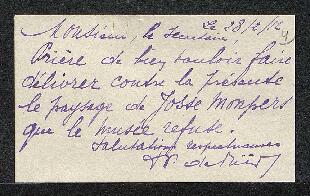 Le 28/2/12
Monsieur, le Secrétaire
Prière de bien vouloir faire
délivrer contre la présente
le paysage de Josse Mompers
que le musée refuse.
Salutations respectueuses